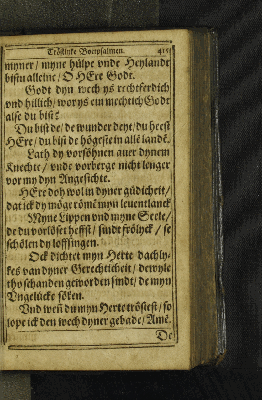 Tröstlyke Boetpsalmen. 415
myner / myne hülpe vnde Heylandt
bistu alleine / O HEre Godt.
Godt dyn wech ys rechtferdich
vnd hillich / wor ys ein mechtich Godt
alse du bist?
Du bist de / de wunder deyt / du heest
HEre / du bist de högeste in alle landē.
Lath dy vorsöhnen auer dynem
Knechte / vnde vorberge nicht lenger
vor my dyn Angesichte.
HEre doh wol in dyner güdicheit /
dat ick dy möge römē myn leuent lanck
Myne Lippen vnd myne Seele /
de du vorlöset heffst / sindt frölyck / se
schölen dy loffsingen.
Ock dichtet myn Herte dachly-
kes van dyner Gerechticheit / derwyle
tho schanden geworden sindt / de myn
Vngelücke söken.
Vnd weñ du myn Herte tröstest / so
lope ick den wech dyner gebade / Amē.
De